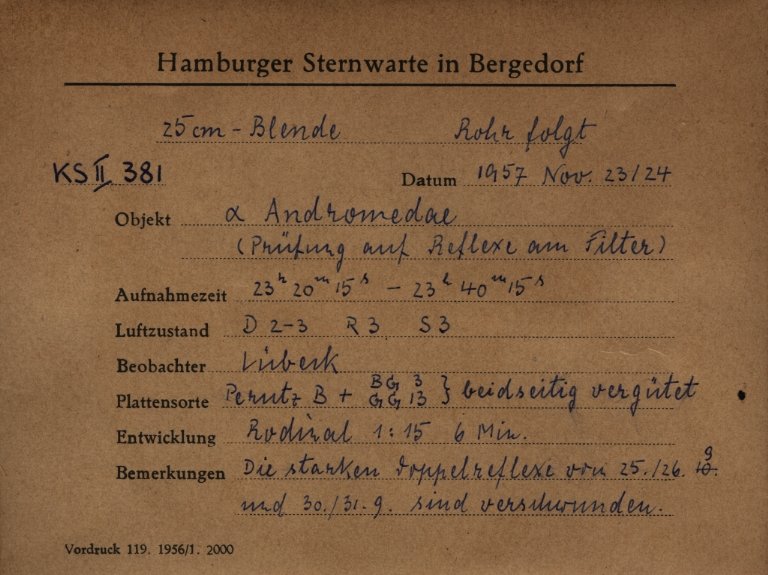 Hamburger Sternwarte in Bergedorf
25 cm - Blende Rohr folgt
KS II 381 Datum 1957 Nov. 23/24
Objekt α Andromedae
(Prüfung auf Reflexe am Filter)
Aufnahmezeit 23ʰ 20ᵐ 15ˢ - 23ʰ 40ᵐ 15ˢ
Luftzustand D 2-3 R 3 S 3
Beobachter Lübeck
Plattensorte Perutz B + BG 3 GG 13 } beidseitig vergütet
Entwicklung Rodinal 1:15 6 Min.
Bemerkungen Die starken Doppelreflexe von 25./26. 9.
und 30./31. 9. sind verschwunden.
Vordruck 119. 1956/1. 2000